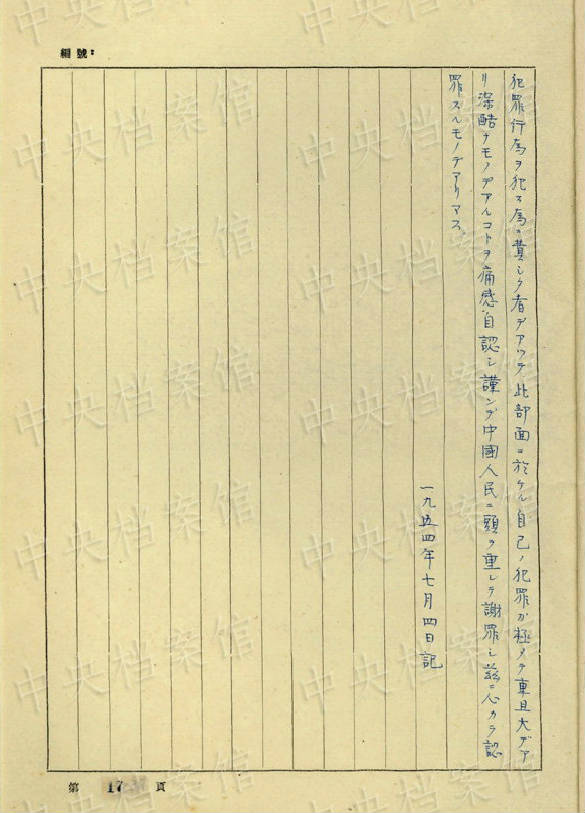 編號：
犯罪行為ヲ犯ス為ニ貢シタ者デアツテ此部面ニ於ケル自己ノ犯罪ガ極メテ重且大デア
リ深酷ナモノデアルコトヲ痛感自認シ謹ンデ中國人民ニ頭ヲ垂レテ謝罪シ茲ニ心カラ認
罪スルモノデアリマス。
一九五四年七月四日記
第 17 頁
中央档案馆